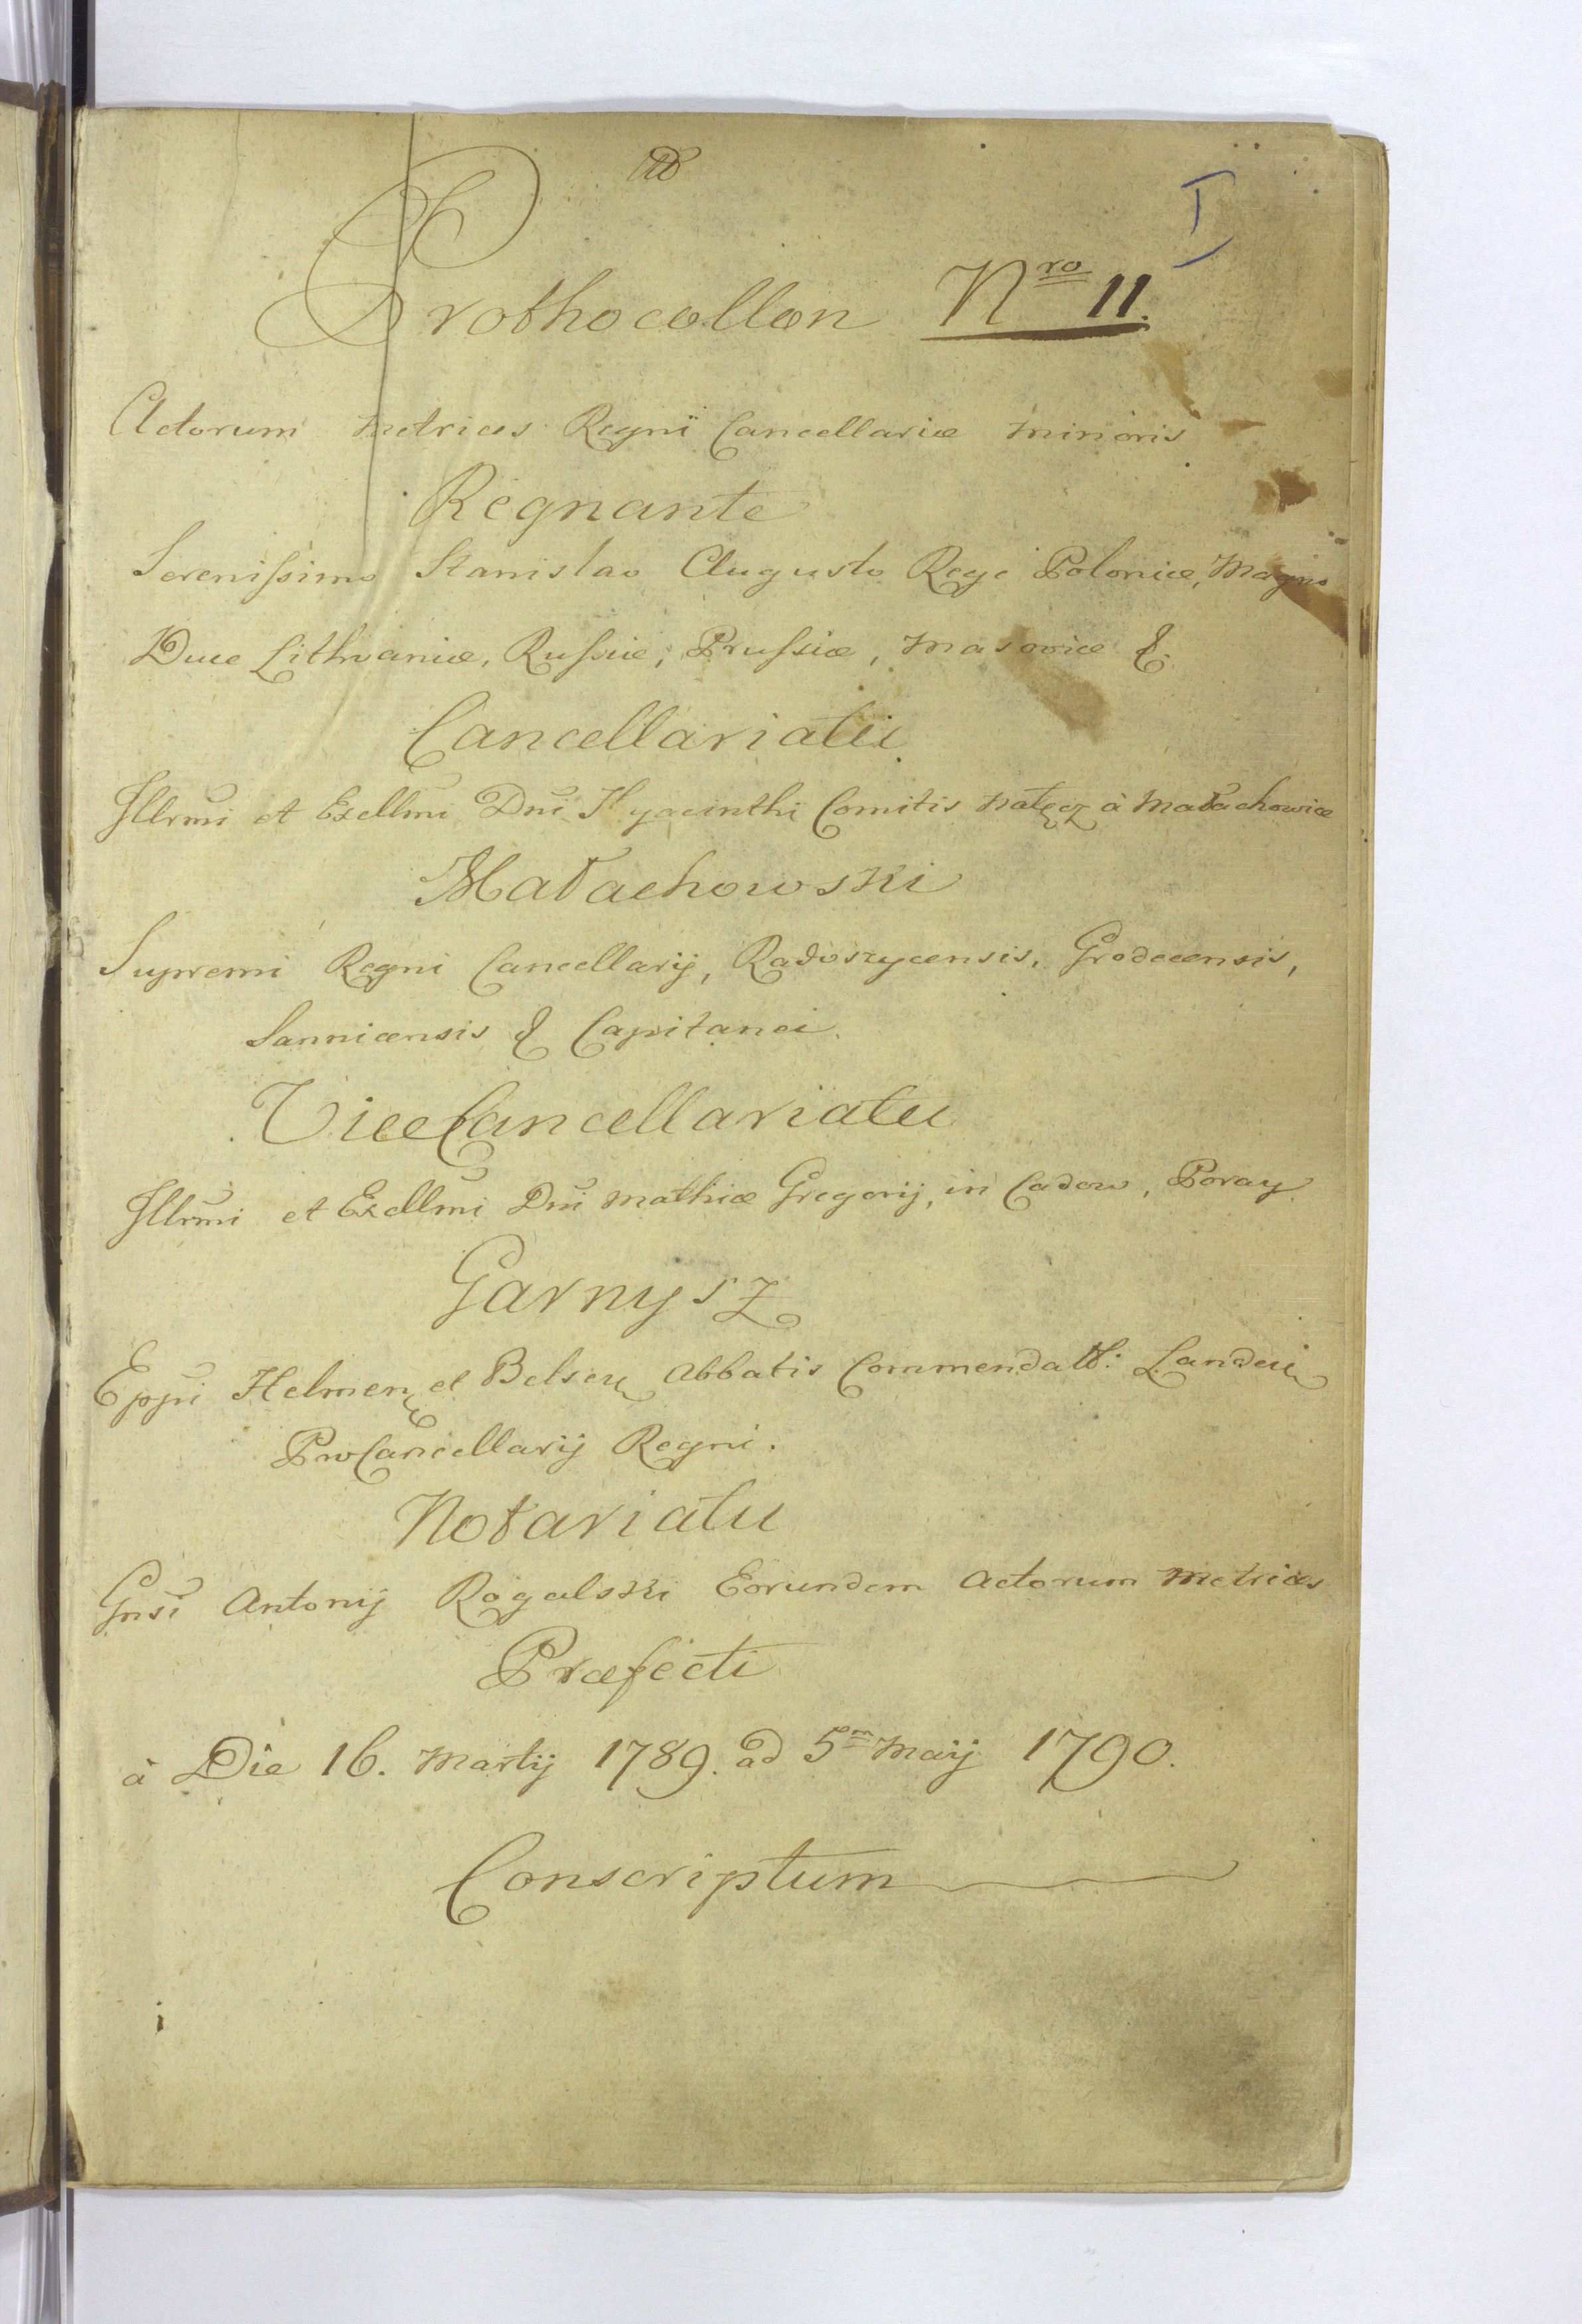 I
Prothocollon Nro 11.
Actorum Metrices Regni Cancellariæ Minoris
Regnante
Serenissimo Stanislao Augusto Rege Poloniæ, Magno
Duce Lithvaniæ, Russiæ, Prussiæ, Masoviæ &.
Cancellariatu
Illrmi et Exellmi Dni Hyacinthi Comitis Nałęcz à Małachowice
Małachowski
Supremi Regni Cancellarij, Radoszycensis, Grodecensis,
Sannicensis & Capitanei.
ViceCancellariatu
Illrmi et Exellmi Dni Mathiæ Gregorij, in Cadow, Poray
Garnysz
Eppi Helmen et Belsen Abbatis Commendatt: Landen
ProCancellarij Regni.
Notariatu
Gnsi Antonij Rogalski Eorundem Actorum Metrices
Præfecti
à Die 16. Martij 1789. ad 5m Maij 1790.
Conscriptum